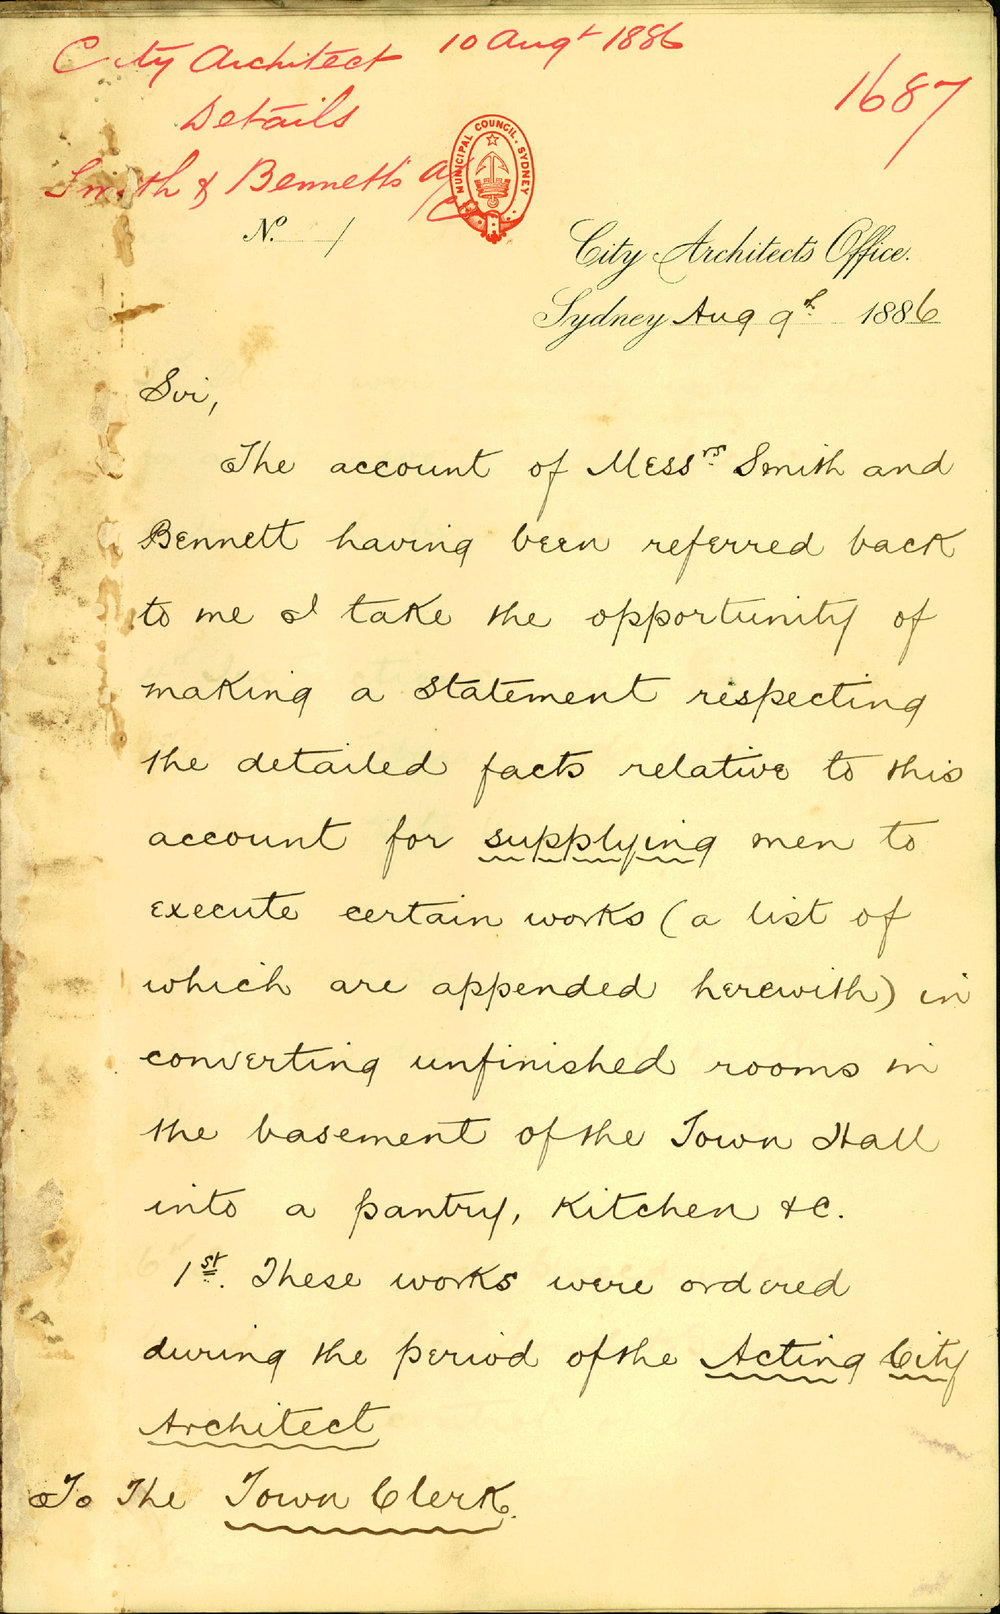 City Architect 10 Augt 1886
1687
Details
Smith & Bennett's a/c
MUNICIPAL COUNCIL. SYDNEY
No. 1
City Architect's Office.
Sydney Aug 9th 1886
Sir,
The account of Messrs Smith and
Bennett having been referred back
to me I take the opportunity of
making a statement respecting
the detailed facts relative to this
account for supplying men to
execute certain works (a list of
which are appended herewith) in
converting unfinished rooms in
the basement of the Town Hall
into a pantry, Kitchen &c.
1st. These works were ordered
during the period of the Acting City
Architect
To The Town Clerk.